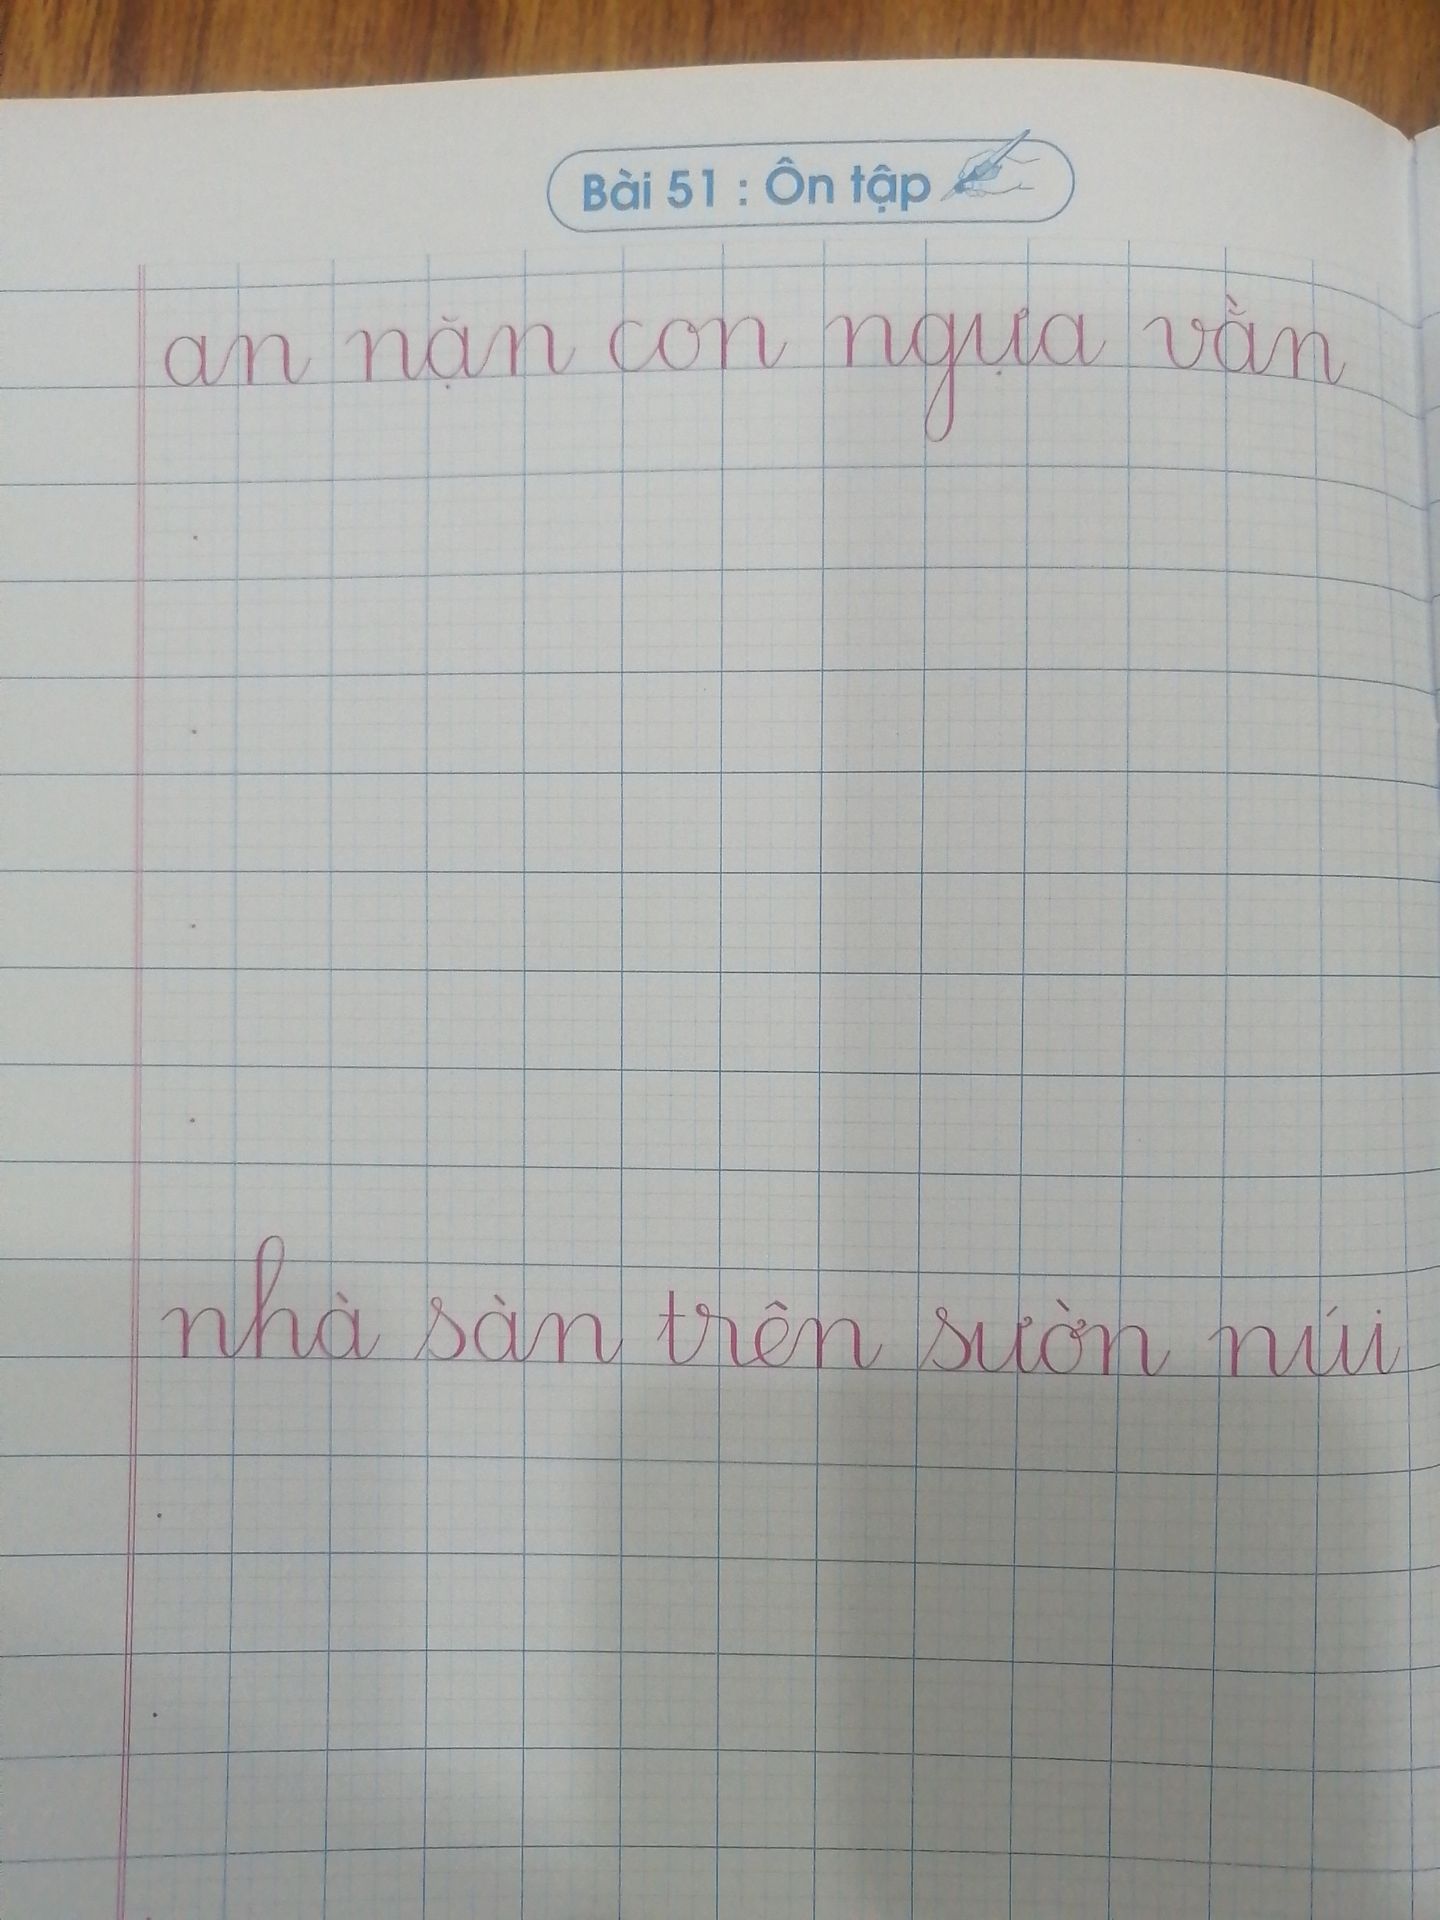 Bài 51 : Ôn tập
an nặn con ngựa vằn
nhà sàn trên sườn núi